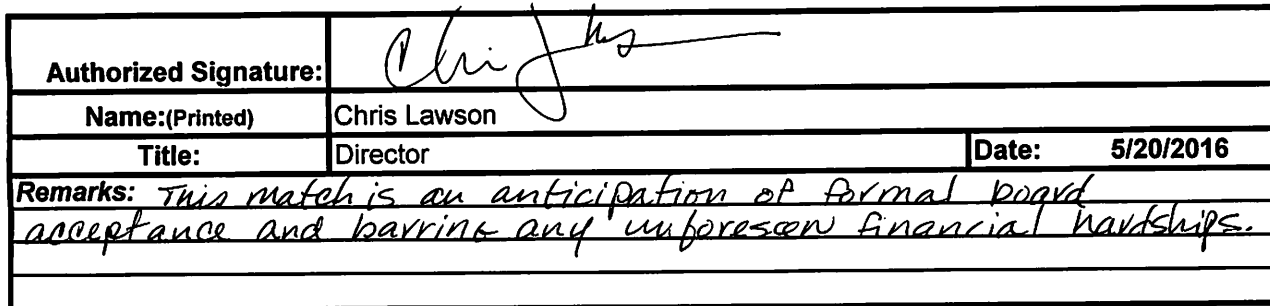 Authorized Signature:
Name:(Printed) Chris Lawson
Title: Director Date: 5/20/2016
Remarks: This match is an anticipation of formal board
acceptance and barring any unforeseen financial hardships.